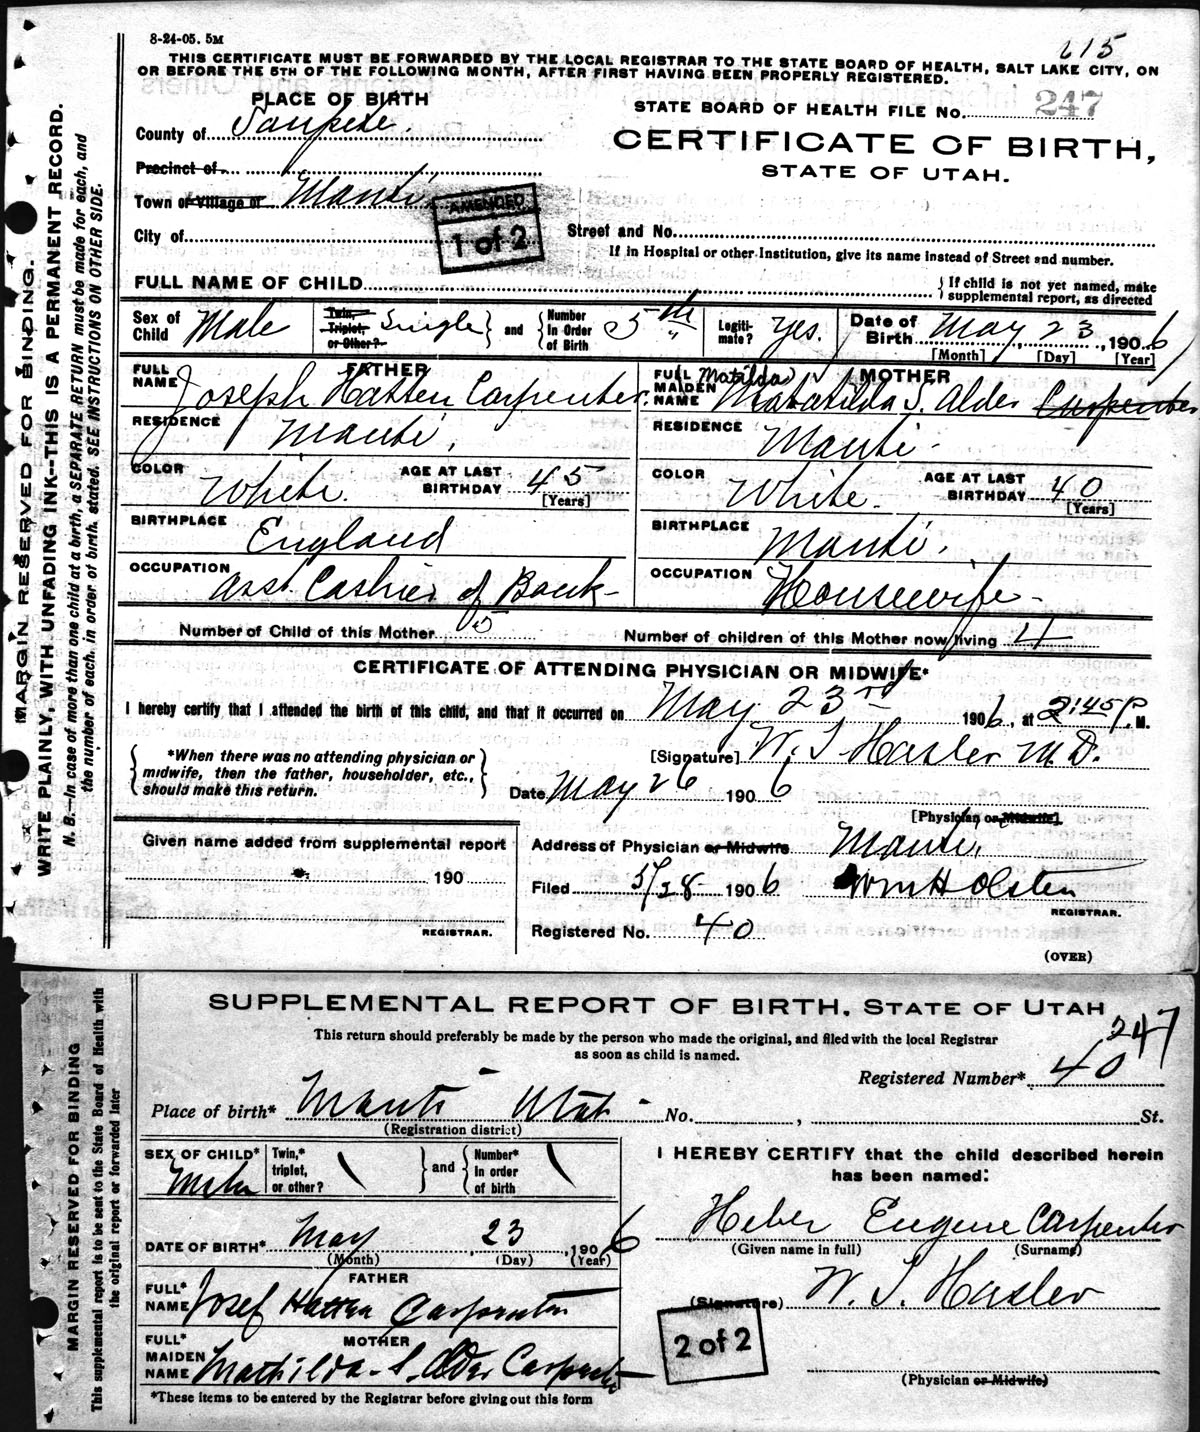 8-24-05. 5M
615
THIS CERTIFICATE MUST BE FORWARDED BY THE LOCAL REGISTRAR TO THE STATE BOARD OF HEALTH, SALT LAKE CITY, ON
OR BEFORE THE 5TH OF THE FOLLOWING MONTH, AFTER FIRST HAVING BEEN PROPERLY REGISTERED.
PLACE OF BIRTH
County of Sanpete.
Precinct of
Town or Village of Manti.
City of
AMENDED
1 of 2
STATE BOARD OF HEALTH FILE No. 247
CERTIFICATE OF BIRTH,
STATE OF UTAH.
Street and No.
If in Hospital or other Institution, give its name instead of Street and number.
FULL NAME OF CHILD
If child is not yet named, make
supplemental report, as directed
Sex of Child Male
Twin, Triplet, or Other? Single and Number In Order of Birth 5th
Legitimate? Yes.
Date of Birth May 23, 1906
[Month] [Day] [Year]
FATHER
FULL NAME Joseph Hatten Carpenter.
RESIDENCE Manti.
COLOR White. AGE AT LAST BIRTHDAY 45
[Years]
BIRTHPLACE England
OCCUPATION Asst Cashier of Bank-
MOTHER
(Matilda)
FULL MAIDEN NAME Matatilda S. Alder Carpenter
RESIDENCE Manti-
COLOR White. AGE AT LAST BIRTHDAY 40
[Years]
BIRTHPLACE Manti.
OCCUPATION Housewife-
Number of Child of this Mother 5 Number of children of this Mother now living 4
CERTIFICATE OF ATTENDING PHYSICIAN OR MIDWIFE*
I hereby certify that I attended the birth of this child, and that it occurred on May 23rd 1906, at 2:45 P.M.
*When there was no attending physician or
midwife, then the father, householder, etc.,
should make this return.
[Signature] W. S Hasler M.D.
Date May 26 1906
[Physician or Midwife]
Given name added from supplemental report
190
REGISTRAR.
Address of Physician or Midwife Manti,
Filed 5/28 1906 Wm H Olsten
REGISTRAR.
Registered No. 40
(OVER)
MARGIN RESERVED FOR BINDING.
WRITE PLAINLY, WITH UNFADING INK--THIS IS A PERMANENT RECORD.
N. B.--In case of more than one child at a birth, a SEPARATE RETURN must be made for each, and
the number of each, in order of birth, stated. SEE INSTRUCTIONS ON OTHER SIDE.
SUPPLEMENTAL REPORT OF BIRTH, STATE OF UTAH
This return should preferably be made by the person who made the original, and filed with the local Registrar
as soon as child is named.
247
Registered Number* 40
Place of birth* Manti Utah- No. , St.
(Registration district)
SEX OF CHILD* Male
Twin,* triplet, or other? and Number* In order of birth
DATE OF BIRTH* May 23, 1906
(Month) (Day) (Year)
FATHER
FULL* NAME Josef Hatten Carpenter
MOTHER
FULL* MAIDEN NAME Mathilda S. Alder Carpenter
*These items to be entered by the Registrar before giving out this form
I HEREBY CERTIFY that the child described herein
has been named:
Heber Eugene Carpenter
(Given name in full) (Surname)
(Signature) W. S. Hasler
2 of 2
(Physician or Midwife)
MARGIN RESERVED FOR BINDING
This supplemental report is to be sent to the State Board of Health with
the original report or forwarded later